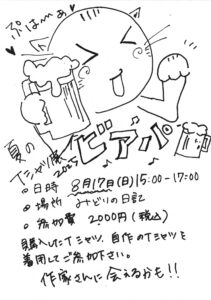 ぷはーぁ
夏の
Tシャツ展
2025
ビアパ
● 日時 8月17日(日)15:00-17:00
● 場所 みどりの日記
● 参加費 2000円(税込)
購入したTシャツ、自作のTシャツを
着用してご参加下さい。
作家さんに会えるかも!!